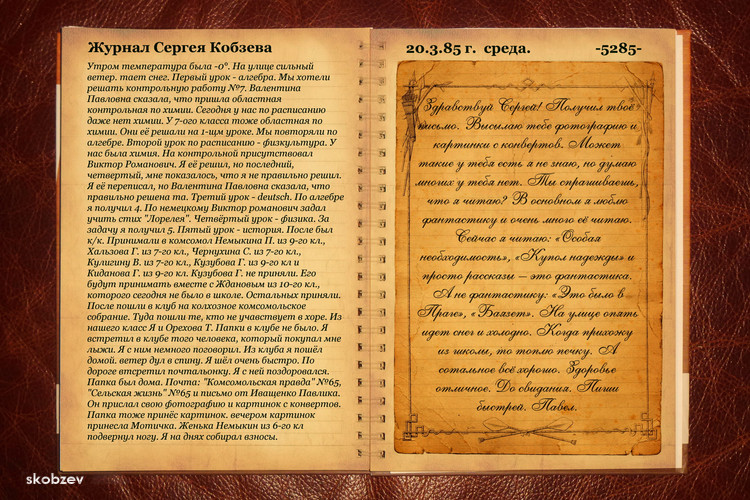 Журнал Сергея Кобзева
Утром температура была -0°. На улице сильный
ветер. тает снег. Первый урок - алгебра. Мы хотели
решать контрольную работу №7. Валентина
Павловна сказала, что пришла областная
контрольная по химии. Сегодня у нас по расписанию
даже нет химии. У 7-ого класса тоже областная по
химии. Они её решали на 1-щм уроке. Мы повторяли по
алгебре. Второй урок по расписанию - физкультура. У
нас была химия. На контрольной присутствовал
Виктор Романович. Я её решил, но последний,
четвертый, мне показалось, что я не правильно решил.
Я её переписал, но Валентина Павловна сказала, что
правильно решена та. Третий урок - deutsch. По алгебре
я получил 4. По немецкому Виктор романович задал
учить стих "Лорелея". Четвёртый урок - физика. За
задачу я получил 5. Пятый урок - история. После был
к/к. Принимали в комсомол Немыкина П. из 9-го кл.,
Хальзова Г. из 7-го кл., Чернухина С. из 7-го кл.,
Кулигину В. из 7-го кл., Кузубова Г. из 9-го кл и
Киданова Г. из 9-го кл. Кузубова Г. не приняли. Его
будут принимать вместе с Ждановым из 10-го кл.,
которого сегодня не было в школе. Остальных приняли.
После пошли в клуб на колхозное комсомольское
собрание. Туда пошли те, кто не учавствует в хоре. Из
нашего класс Я и Орехова Т. Папки в клубе не было. Я
встретил в клубе того человека, который покупал мне
лыжи. Я с ним немного поговорил. Из клуба я пошёл
домой. ветер дул в спину. Я шёл очень быстро. По
дороге втсретил почтальонку. Я с ней поздоровался.
Папка был дома. Почта: "Комсомольская правда" №65,
"Сельская жизнь" №65 и письмо от Иващенко Павлика.
Он прислал свою фотографию и картинок с конвертов.
Папка тоже принёс картинок. вечером картинок
принесла Мотичка. Женька Немыкин из 6-го кл
подвернул ногу. Я на днях собирал взносы.
20.3.85 г. среда. -5285-
Здравствуй Сергей! Получил твоё
письмо. Высылаю тебе фотографию и
картинки с конвертов. Может
такие у тебя есть я не знаю, но думаю
многих у тебя нет. Ты спрашиваешь,
что я читаю? В основном я люблю
фантастику и очень много её читаю.
Сейчас я читаю: «Особая
необходимость», «Купол надежды» и
просто рассказы – это фантастика.
А не фантастику: «Это было в
Праге», «Баязет». На улице опять
идет снег и холодно. Когда прихожу
из школы, то топлю печку. А
остальное всё хорошо. Здоровье
отличное. До свидания. Пиши
быстрей. Павел.
skobzev